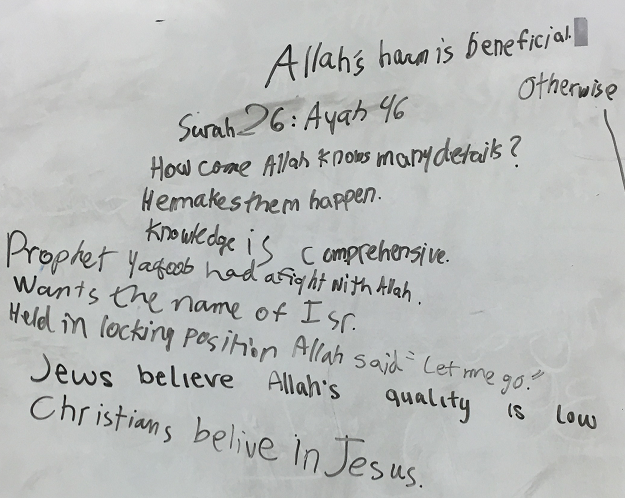 Allah's harm is beneficial.
Otherwise
Surah 26: Ayah 46
How come Allah knows many details?
He makes them happen.
Knowledge is comprehensive.
Prophet Yaqoob had a fight with Allah.
Wants the name of Isr.
Held in locking position Allah said "Let me go."
Jews believe Allah's quality is low
Christians belive in Jesus.